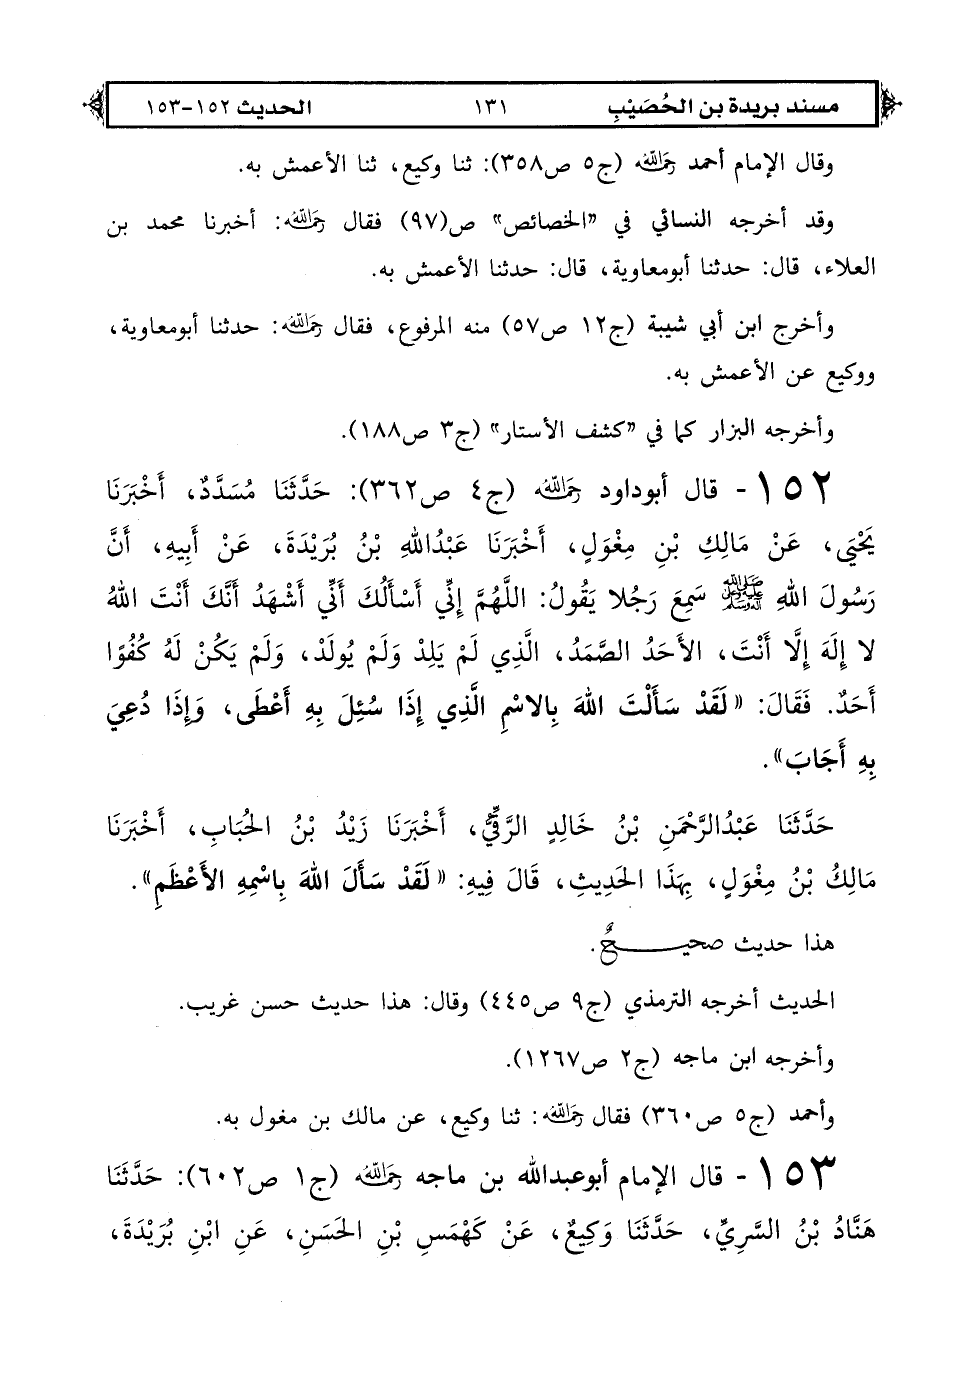 مسند بريدة بن الحُصَيْبِ ١٣١ الحديث ١٥٢-١٥٣
وقال الإمام أحمد رحمه الله (ج٥ ص٣٥٨): ثنا وكيع، ثنا الأعمش به.
وقد أخرجه النسائي في "الخصائص" ص(٩٧) فقال رحمه الله: أخبرنا محمد بن
العلاء، قال: حدثنا أبومعاوية، قال: حدثنا الأعمش به.
وأخرج ابن أبي شيبة (ج١٢ ص٥٧) منه المرفوع، فقال رحمه الله: حدثنا أبومعاوية،
ووكيع عن الأعمش به.
وأخرجه البزار كما في "كشف الأستار" (ج٣ ص١٨٨).
١٥٢- قال أبوداود رحمه الله (ج٤ ص٣٦٢): حَدَّثَنَا مُسَدَّدٌ، أَخْبَرَنَا
يَحْيَى، عَنْ مَالِكِ بْنِ مِغْوَلٍ، أَخْبَرَنَا عَبْدُاللهِ بْنُ بُرَيْدَةَ، عَنْ أَبِيهِ، أَنَّ
رَسُولَ اللهِ ﷺ سَمِعَ رَجُلا يَقُولُ: اللَّهُمَّ إِنِّي أَسْأَلُكَ أَنِّي أَشْهَدُ أَنَّكَ أَنْتَ اللهُ
لا إِلَهَ إِلَّا أَنْتَ، الأَحَدُ الصَّمَدُ، الَّذِي لَمْ يَلِدْ وَلَمْ يُولَدْ، وَلَمْ يَكُنْ لَهُ كُفُوًا
أَحَدٌ. فَقَالَ: «لَقَدْ سَأَلْتَ اللهَ بِالاسْمِ الَّذِي إِذَا سُئِلَ بِهِ أَعْطَى، وَإِذَا دُعِيَ
بِهِ أَجَابَ».
حَدَّثَنَا عَبْدُالرَّحْمَنِ بْنُ خَالِدٍ الرَّقِّيُّ، أَخْبَرَنَا زَيْدُ بْنُ الحُبَابِ، أَخْبَرَنَا
مَالِكُ بْنُ مِغْوَلٍ، بِهَذَا الحَدِيثِ، قَالَ فِيهِ: «لَقَدْ سَأَلَ اللهَ بِاسْمِهِ الأَعْظَمِ».
هذا حديث صحيحٌ.
الحديث أخرجه الترمذي (ج٩ ص٤٤٥) وقال: هذا حديث حسن غريب.
وأخرجه ابن ماجه (ج٢ ص١٢٦٧).
وأحمد (ج٥ ص٣٦٠) فقال رحمه الله: ثنا وكيع، عن مالك بن مغول به.
١٥٣- قال الإمام أبوعبدالله بن ماجه رحمه الله (ج١ ص٦٠٢): حَدَّثَنَا
هَنَّادُ بْنُ السَّرِيِّ، حَدَّثَنَا وَكِيعٌ، عَنْ كَهْمَسِ بْنِ الحَسَنِ، عَنِ ابْنِ بُرَيْدَةَ،